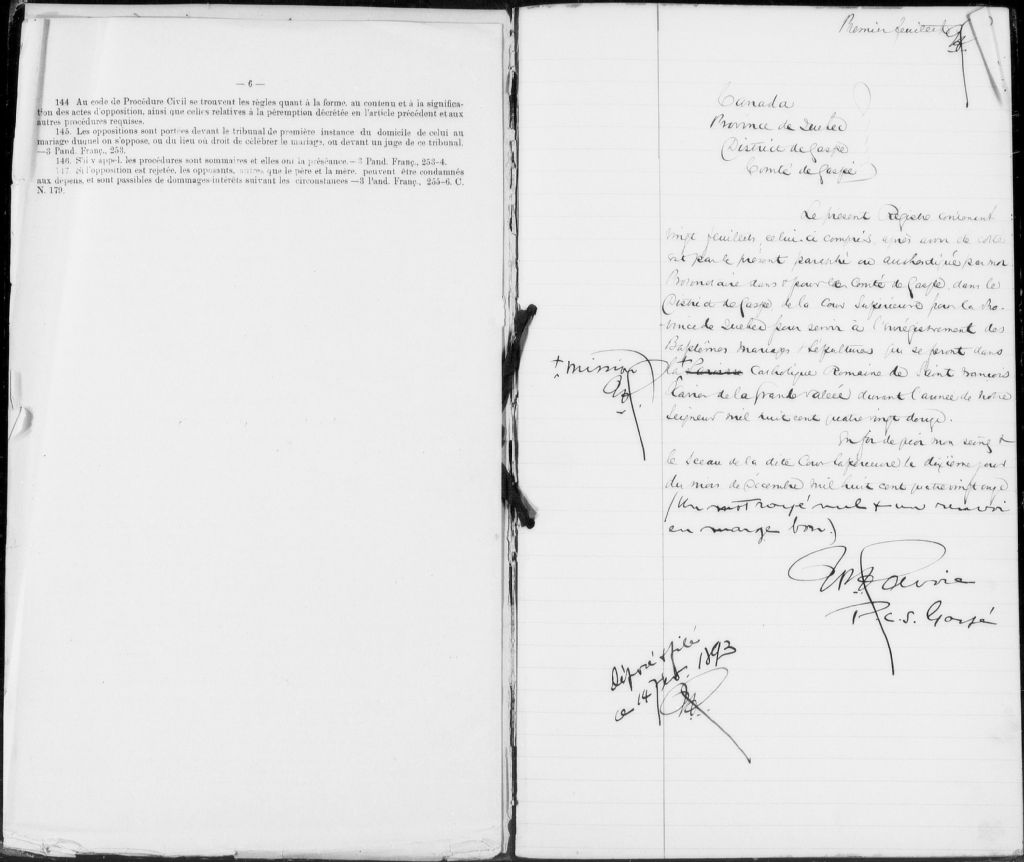 — 6 —
144 Au code de Procédure Civil se trouvent les règles quant à la forme, au contenu et à la significa-
tion des actes d'opposition, ainsi que celles relatives à la péremption décrétée en l'article précédent et aux
autres procédures requises.
145. Les oppositions sont portées devant le tribunal de première instance du domicile de celui au
mariage duquel on s'oppose, ou du lieu où droit de célébrer le mariage, ou devant un juge de ce tribunal.
—3 Pand. Franç., 253.
146. S'il y appel, les procédures sont sommaires et elles ont la préséance.—3 Pand. Franç., 253-4.
147. Si l'opposition est rejetée, les opposants, autres que le père et la mère, peuvent être condamnés
aux dépens, et sont passibles de dommages-intérêts suivant les circonstances—3 Pand. Franç., 255-6. C.
N. 179.
Premier feuillet
Canada
Province de Québec
District de Gaspé
Comté de Gaspé
Le présent Registre contenant
vingt feuillets, celui-ci compris, après avoir été coté
est par le présent paraphé et authentiqué par moi
Protonotaire dans & pour le Comté de Gaspé, dans le
District de Gaspé de la Cour Supérieure pour la Pro-
vince de Québec pour servir à l'enrégistrement des
Baptêmes Mariages & Sépultures qui se feront dans
la + Catholique Romaine de Saint François
Xavier de la Grande Vallée durant l'année de Notre
Seigneur mil huit cent quatre vingt douze.
+ mission
En foi de quoi mon seing &
le Sceau de la dite Cour Supérieure le dixième jour
du mois de Décembre mil huit cent quatre vingt onze
(Un mot rayé nul & un renvoi
en marge bon.)
P.C.S. Gaspé
Déposé & filé
ce 14 Feb. 1893